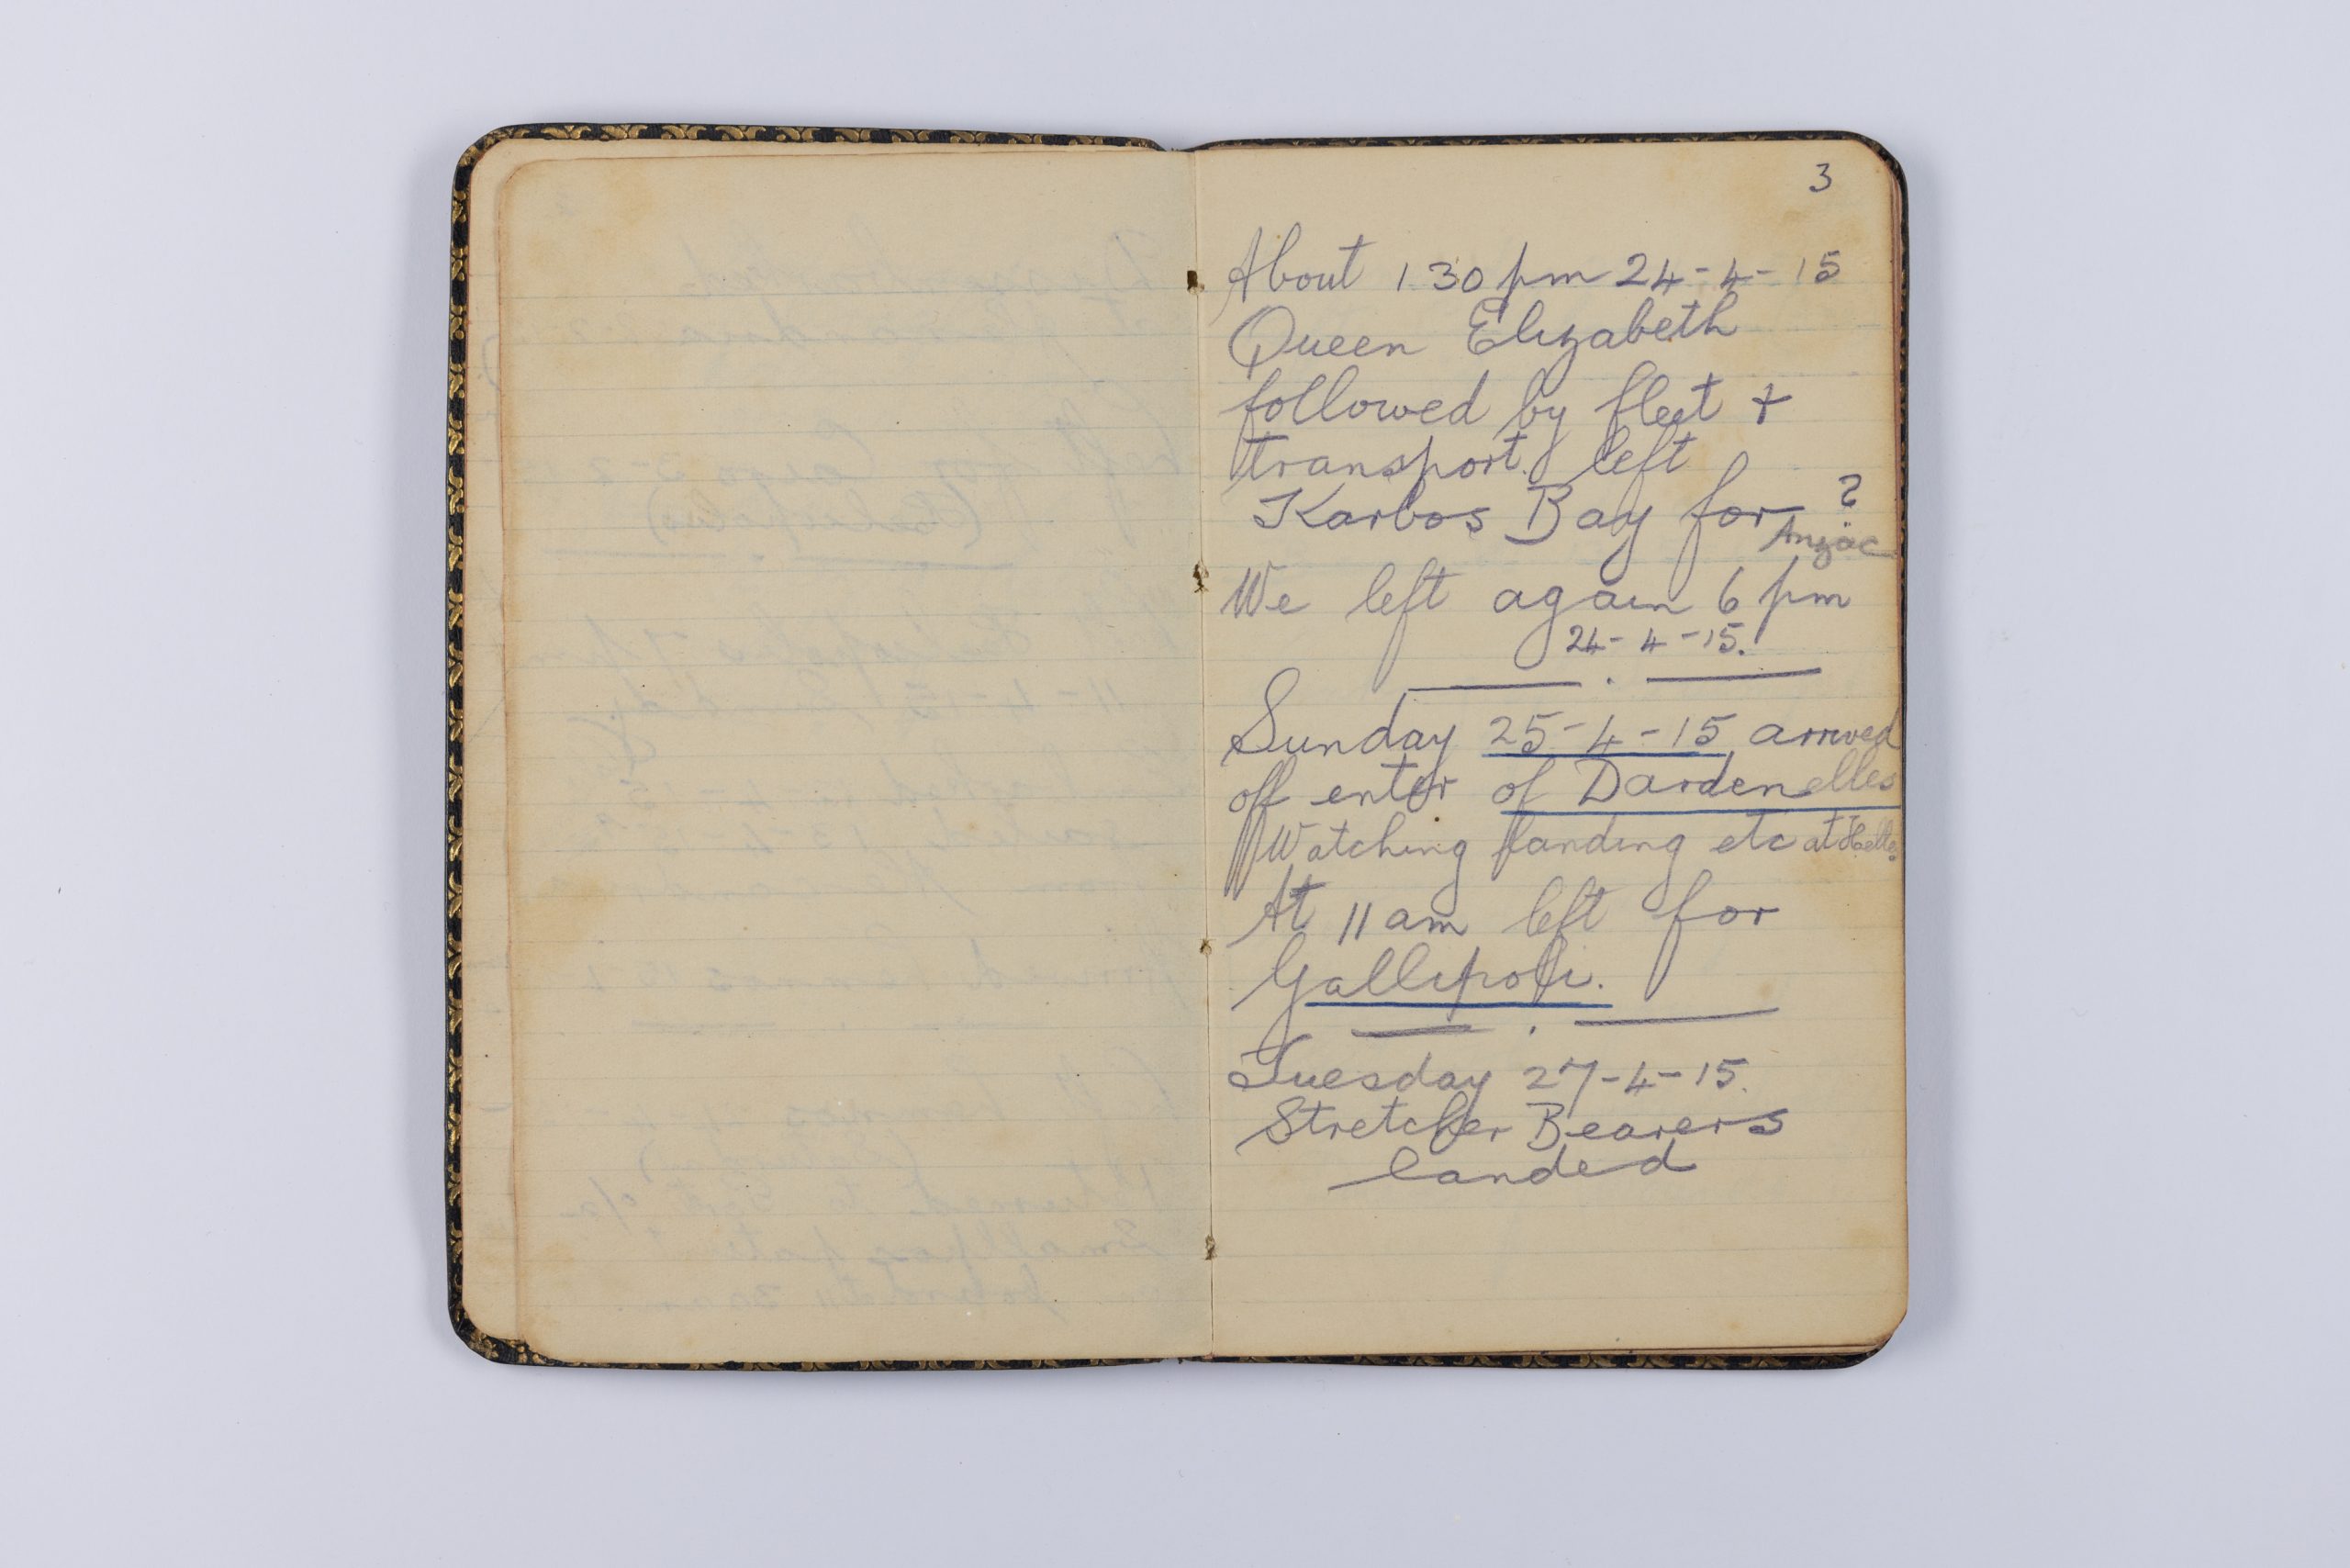 3
About 1 30 pm 24-4-15
Queen Elizabeth
followed by fleet +
transport. left
Karbos Bay for ?
Anzac
We left again 6 pm
24-4-15.
Sunday 25-4-15 arrived
off enter of Dardenelles
Watching landing etc at Helles
At 11 am left for
Gallipoli.
Tuesday 27-4-15.
Stretcher Bearers
landed